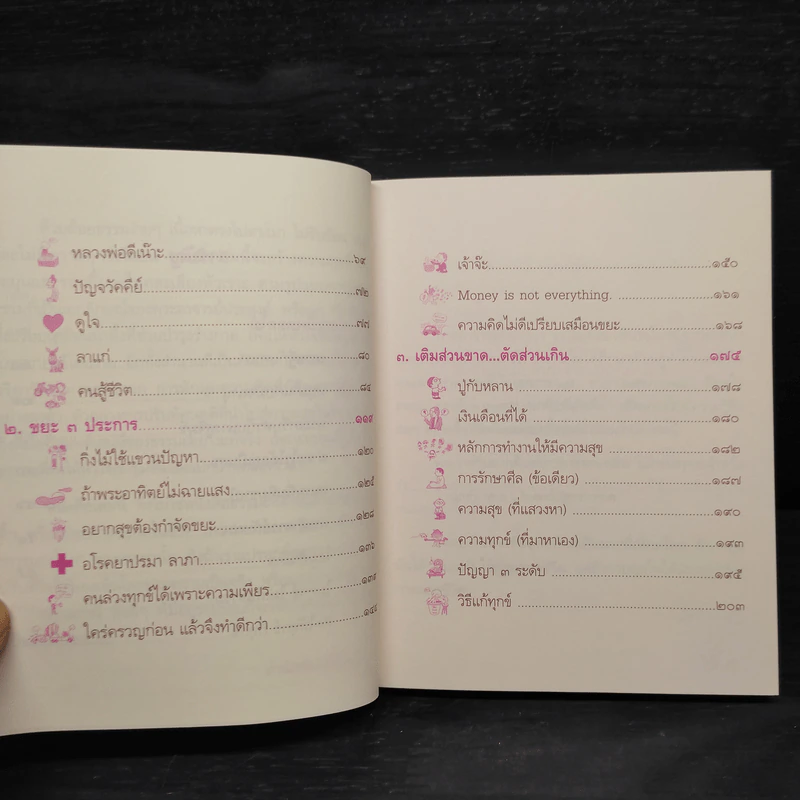 หลวงพ่อดีเน๊าะ............๖๙
ปัญจวัคคีย์............๗๒
ดูใจ............๗๗
ลาแก่............๘๐
คนสู้ชีวิต............๘๔
๒. ขยะ ๓ ประการ............๑๑๙
กิ่งไม้ใช้แขวนปัญหา............๑๒๐
ถ้าพระอาทิตย์ไม่ฉายแสง............๑๒๕
อยากสุขต้องกำจัดขยะ............๑๒๘
อโรคยาปรมา ลาภา............๑๓๖
คนล่วงทุกข์ได้เพราะความเพียร............๑๓๙
ใคร่ครวญก่อน แล้วจึงทำดีกว่า............๑๔๔
เจ้าจ๊ะ............๑๕๐
Money is not everything. ............๑๖๑
ความคิดไม่ดีเปรียบเสมือนขยะ............๑๖๘
๓. เติมส่วนขาด...ตัดส่วนเกิน............๑๗๕
ปู่กับหลาน ............๑๗๘
เงินเดือนที่ได้ ............๑๘๐
หลักการทำงานให้มีความสุข ............๑๘๒
การรักษาศีล (ข้อเดียว) ............๑๘๗
ความสุข (ที่แสวงหา) ............๑๙๐
ความทุกข์ (ที่มาหาเอง) ............๑๙๓
ปัญญา ๓ ระดับ ............๑๙๕
วิธีแก้ทุกข์ ............๒๐๓